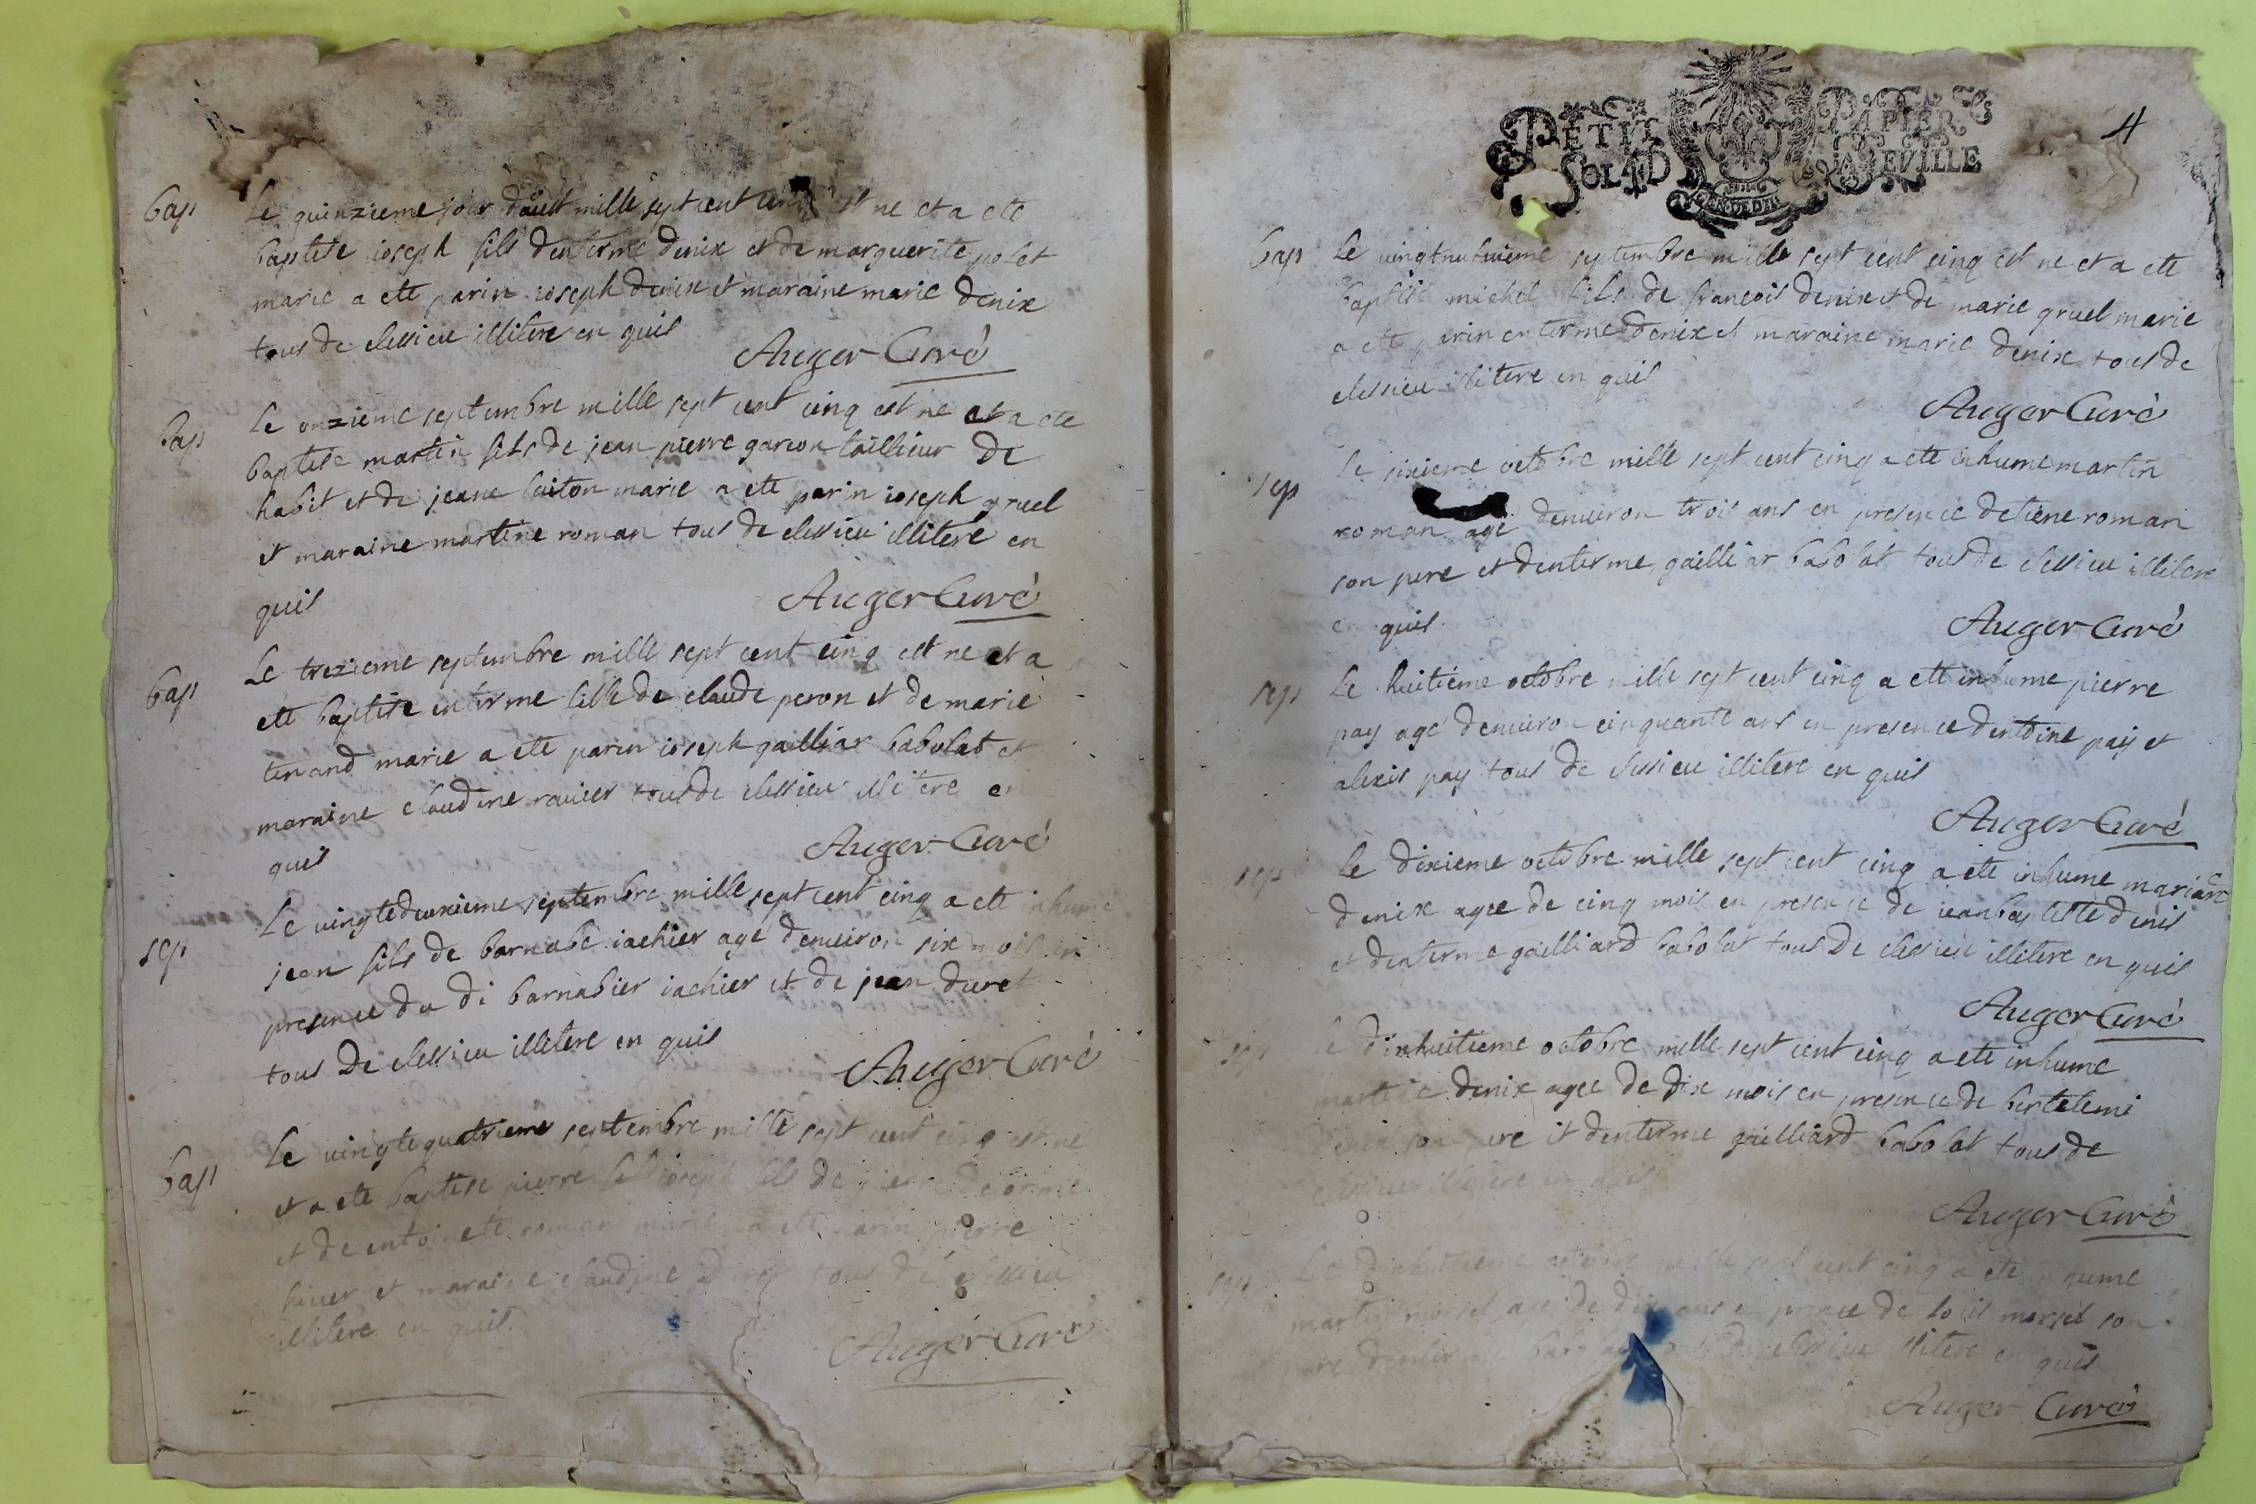 bap
Le quinzieme jour daust mille sept cent cinq est ne et a ete
baptise ioseph fils denterme denix et de marguerite polet
marie a ete parin ioseph denix et maraine marie denix
tous de clessieu illitere en quis
Auger Curé
bap
Le onzieme septembre mille sept cent cinq est ne et a ete
baptise martin fils de jean pierre garcon tailleur de
habit et de jeane buiton marie a ete parin ioseph gruel
et maraine martine roman tous de clessieu illitere en
quis
Auger Curé
bap
Le trezieme septembre mille sept cent cinq est ne et a
ete baptise enterme fille de claude peron et de marie
tenand marie a ete parin ioseph gailliar babolat et
maraine claudine ravier tous de clessieu illitere en
quis
Auger Curé
sep
Le vingtedeuxieme septembre mille sept cent cinq a ete inhume
jean fils de barnabe iachier agé denuiron six mois en
presence du di barnabier iachier et de jean duret
tous de clessieu illitere en quis
Auger Curé
bap
Le vingtequatrieme septembre mille sept cent cinq est ne
et a ete baptise pierre ioseph fils de pierre
et de entoinete roman marie a ete parin pierre
et maraine claudine tous de clessieu
illitere en quis
Auger Curé
4
PETIT PAPIER
SOL DEVILLE
bap
Le vingtnuhuieme septembre mille sept cent cinq est ne et a ete
baptise michel fils de francois denix et de marie gruel marie
a ete parin enterme denix et maraine marie denix tous de
clessieu illitere en quis
Auger Curé
sep
Le sixieme octobre mille sept cent cinq a ete inhume martin
roman agé denuiron trois ans en presence detiene roman
son pere et denterme gailliar babolat tous de clessieu illitere
en quis
Auger Curé
sep
Le huitiéme octobre mille sept cent cinq a ete inhume pierre
pay agé denuiron cinquante ans en presence dentoine pay et
alexis pay tous de clessieu illitere en quis
Auger Curé
sep
Le dixieme octobre mille sept cent cinq a ete inhume mariane
denix agee de cinq mois en presence de iean baptiste denis
et denterme gailliard babolat tous de clessieu illitere en quis
Auger Curé
sep
Le dixhuitieme octobre mille sept cent cinq a ete inhume
martine denix agee de dix mois en presence de bertelemi
denix son pere et denterme gailliard babolat tous de
clessieu illitere en quis
Auger Curé
sep
Le dixhuitieme octobre mille sept cent cinq a ete inhume
martin morsel age de dix ans en presence de louis morsel son
pere tous de clessieu illitere en quis
Auger Curé